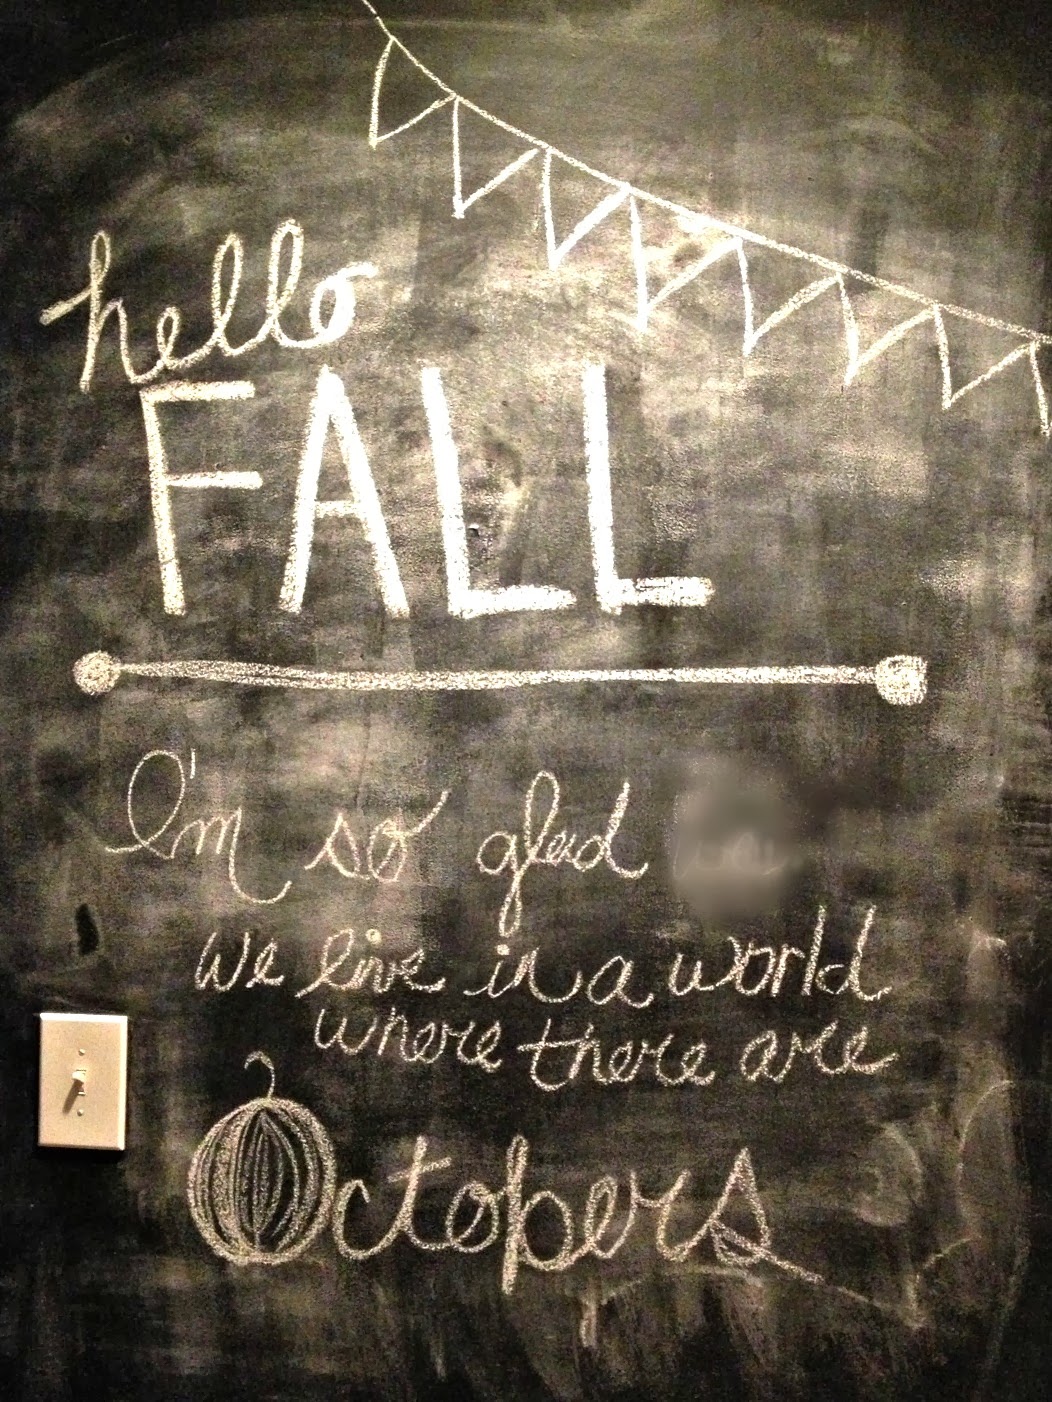 hello
FALL
I'm so glad
we live in a world
where there are
Octobers